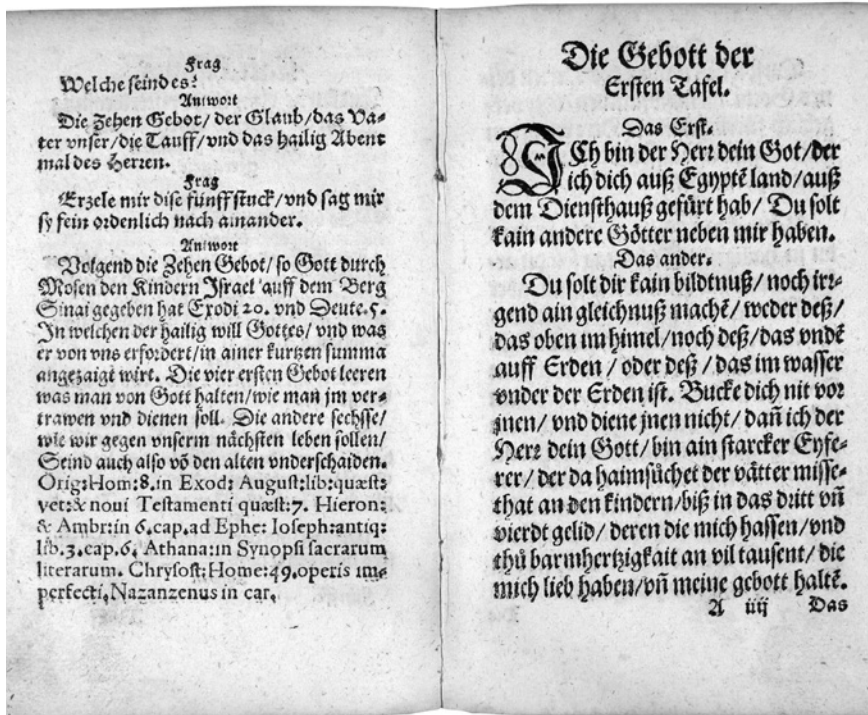 Frag
Welche seind es?
Antwort
Die Zehen Gebot/ der Glaub/das Va-
ter vnser/die Tauff/vnd das hailig Abent
mal des Herren.
Frag
Erzele mir dise fünff stuck/vnd sag mir
sy fein ordenlich nach ainander.
Antwort
Volgend die Zehen Gebot/ so Gott durch
Mosen den Kindern Jsrael auff dem Berg
Sinai gegeben hat Exodi 20. vnd Deute. 5.
Jn welchen der hailig will Gottes/ vnd was
er von vns erfordert/in ainer kurtzen summa
angezaigt wirt. Die vier ersten Gebot leeren
was man von Gott halten/wie man jm ver-
trawen vnd dienen soll. Die andere sechsse/
wie wir gegen vnserm nächsten leben sollen/
Seind auch also vō den alten vnderschaiden.
Orig: Hom: 8. in Exod: August: lib: quæst:
vet: & noui Testamenti quæst: 7. Hieron:
& Ambr: in 6. cap. ad Ephe: Ioseph: antiq:
lib. 3. cap. 6. Athana: in Synopsi sacrarum
literarum. Chrysost: Home: 49. operis im-
perfecti, Nazanzenus in car.
Die Gebott der
Ersten Tafel.
Das Erst.
JCh bin der Herr dein Got/der
ich dich auß Egyptē land/auß
dem Diensthauß gefürt hab/ Du solt
kain andere Götter neben mir haben.
Das ander.
Du solt dir kain bildtnuß/ noch irr-
gend ain gleichnuß machē/ weder deß/
das oben im himel/noch deß/das vndē
auff Erden / oder deß / das im wasser
vnder der Erden ist. Bucke dich nit vor
jnen/ vnd diene jnen nicht/ dañ ich der
Herr dein Gott/ bin ain starcker Eyfe-
rer/ der da haimsůchet der vätter misse-
that an den kindern/biß in das dritt vñ
vierdt gelid/ deren die mich hassen/vnd
thů barmhertzigkait an vil tausent/ die
mich lieb haben/vñ meine gebott haltē.
A iiij Das